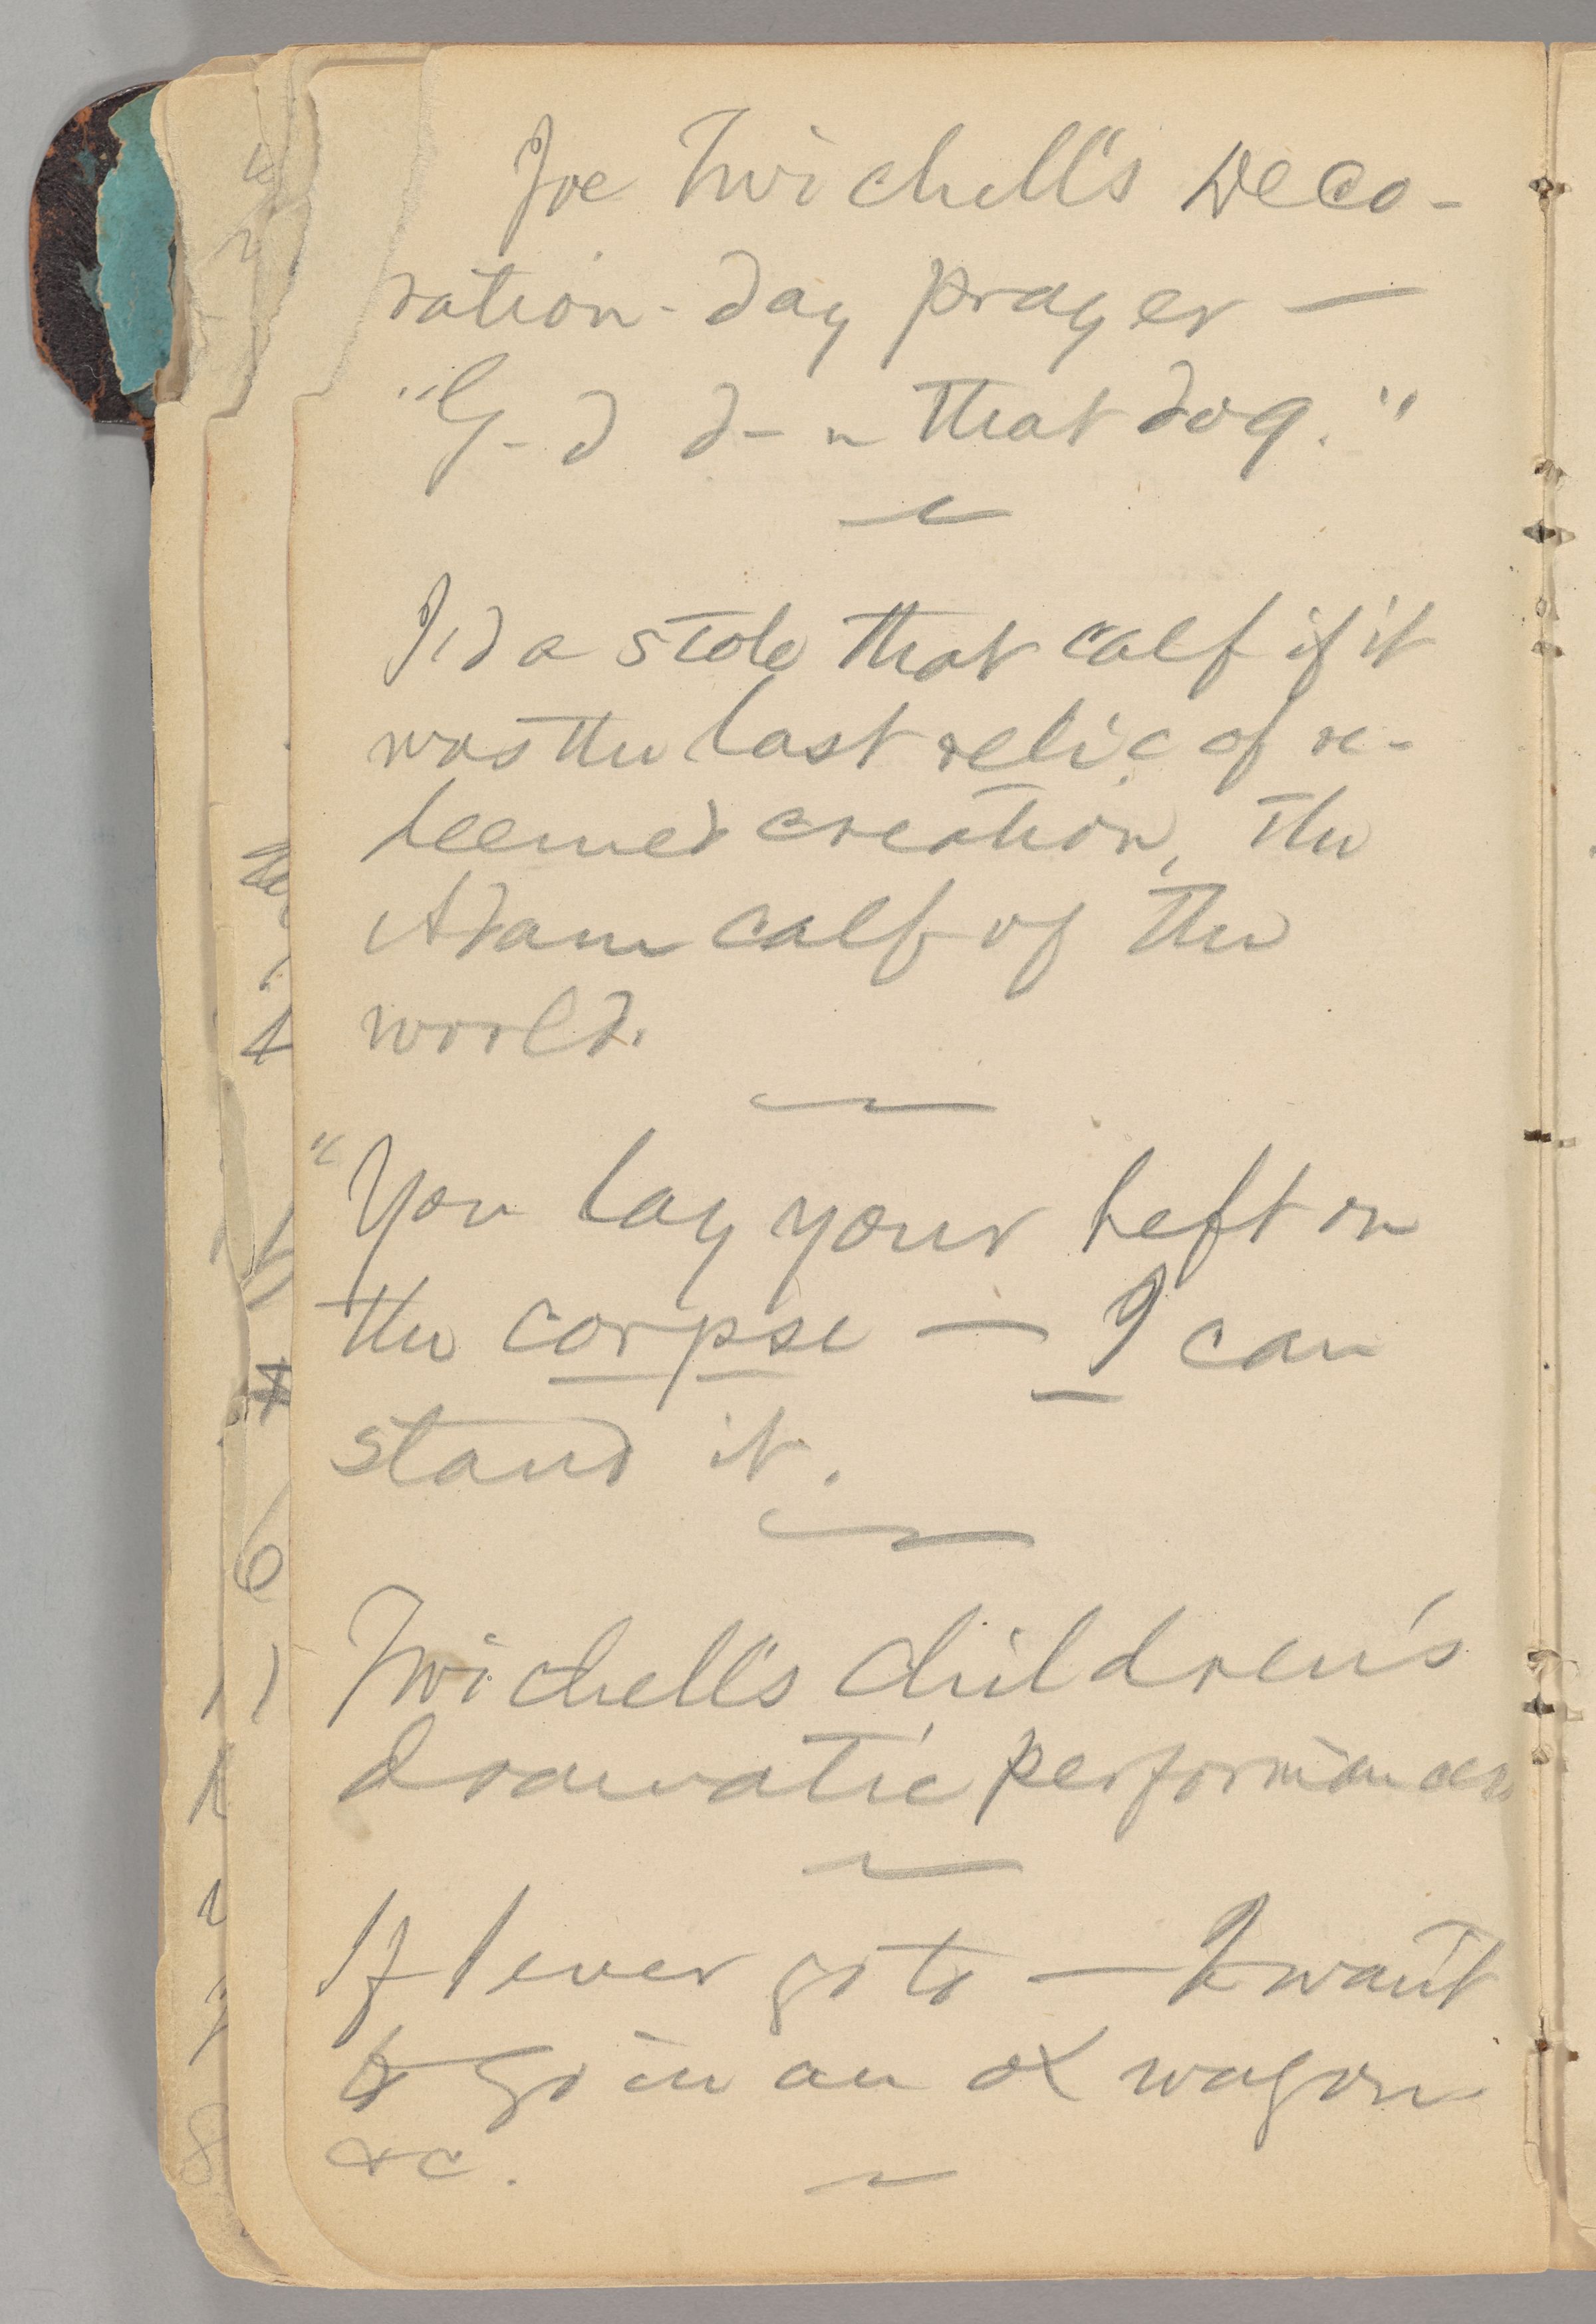 Joe Twichell's Deco-
ration-day prayer —
"G-d d-n that dog."
I'd a stole that calf if it
was the last relic of re-
deemed creation, the
Adam calf of the
world.
"You lay your heft on
the corpse — I can
stand it.
Twichell's children's
dramatic performances
If I ever go to — I want
to go in an ox wagon
&c.